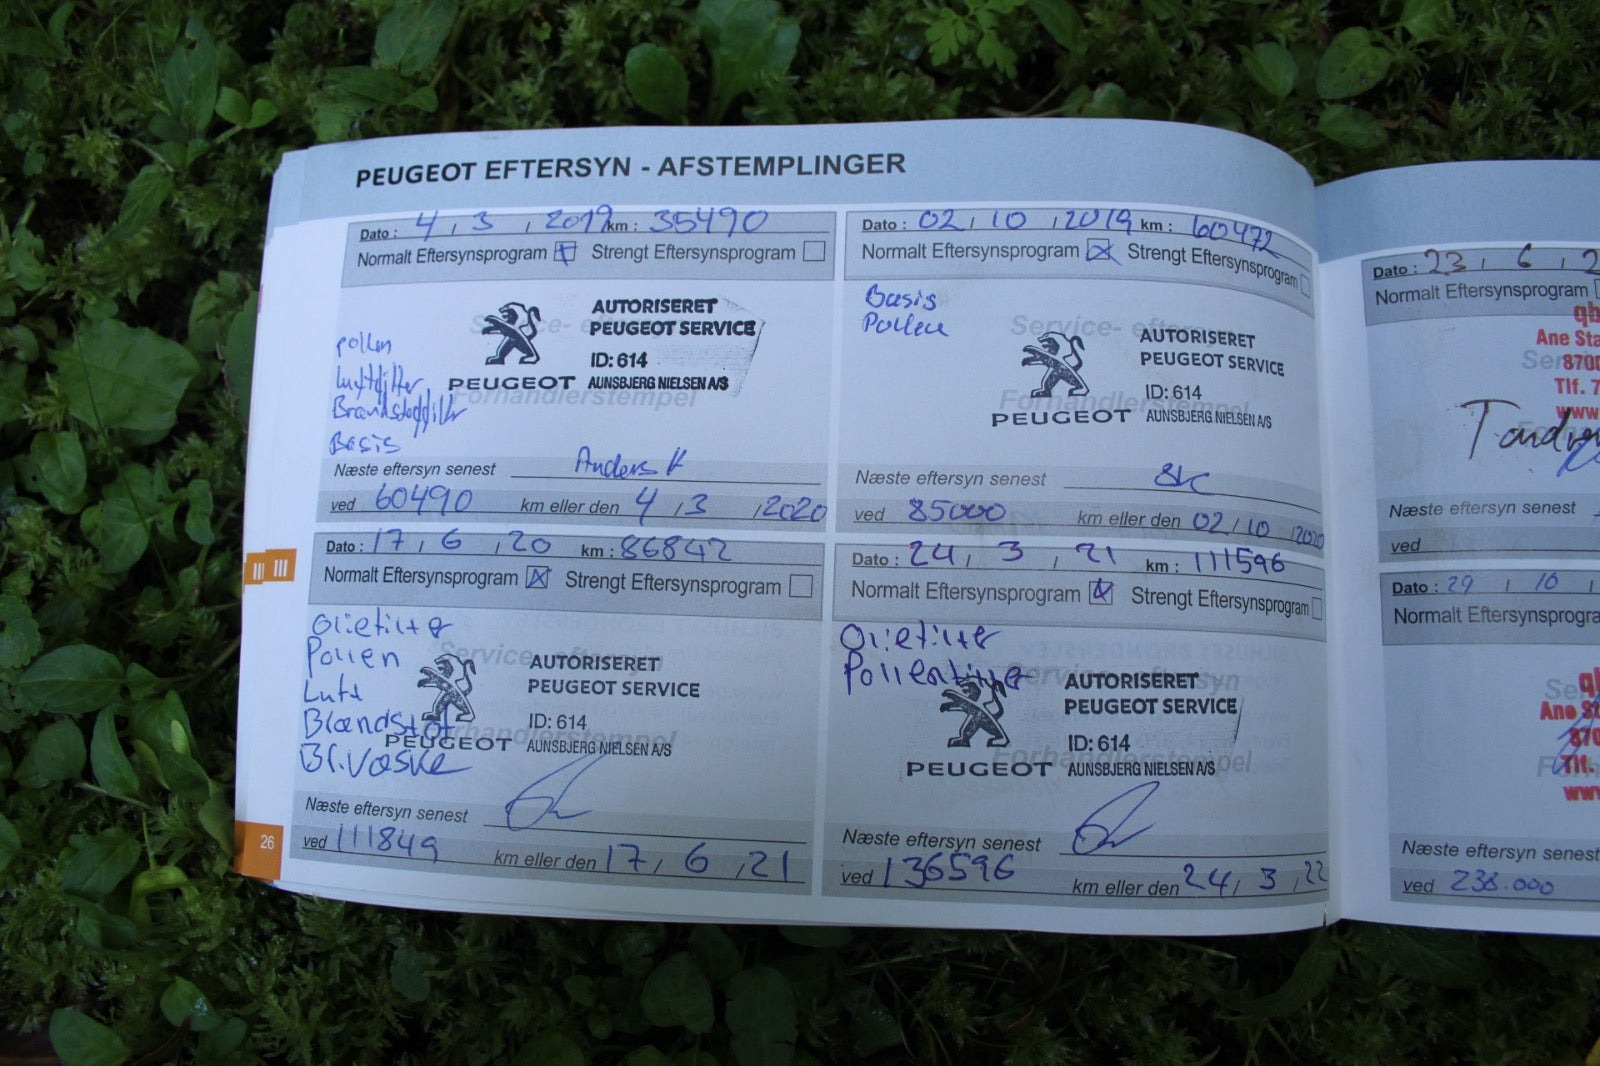 PEUGEOT EFTERSYN - AFSTEMPLINGER
Dato : 4 / 3 / 2019 km : 35490
Normalt Eftersynsprogram Strengt Eftersynsprogram
Service- eftersyn
AUTORISERET
PEUGEOT SERVICE
ID: 614
PEUGEOT AUNSBJERG NIELSEN A/S
Forhandlerstempel
pollen
Luftfilter
Brændstoffilter
Basis
Næste eftersyn senest Anders K
ved 60490 km eller den 4 / 3 / 2020
Dato : 02 / 10 / 2019 km : 60472
Normalt Eftersynsprogram Strengt Eftersynsprogram
Basis
Pollen
Service- eftersyn
AUTORISERET
PEUGEOT SERVICE
ID: 614
PEUGEOT AUNSBJERG NIELSEN A/S
Forhandlerstempel
Næste eftersyn senest
ved 85000 km eller den 02 / 10 / 2020
Dato : 17 / 6 / 20 km : 86842
Normalt Eftersynsprogram Strengt Eftersynsprogram
Oliefilter
Pollen
Luft
Brændstof
Br.væske
Service- eftersyn
AUTORISERET
PEUGEOT SERVICE
ID: 614
PEUGEOT AUNSBJERG NIELSEN A/S
Forhandlerstempel
Næste eftersyn senest
ved 111849 km eller den 17 / 6 / 21
Dato : 24 / 3 / 21 km : 111596
Normalt Eftersynsprogram Strengt Eftersynsprogram
Oliefilter
Pollenfilter
Service- eftersyn
AUTORISERET
PEUGEOT SERVICE
ID: 614
PEUGEOT AUNSBJERG NIELSEN A/S
Forhandlerstempel
Næste eftersyn senest
ved 136596 km eller den 24 / 3 / 22
26
Dato : 23 / 6 / 2
Normalt Eftersynsprogram
Ane Sta
8700
Tlf. 7
www
Næste eftersyn senest
ved
Dato : 29 / 10 /
Normalt Eftersynsprogra
Ane S
870
Tlf.
www
Næste eftersyn senest
ved 238.000